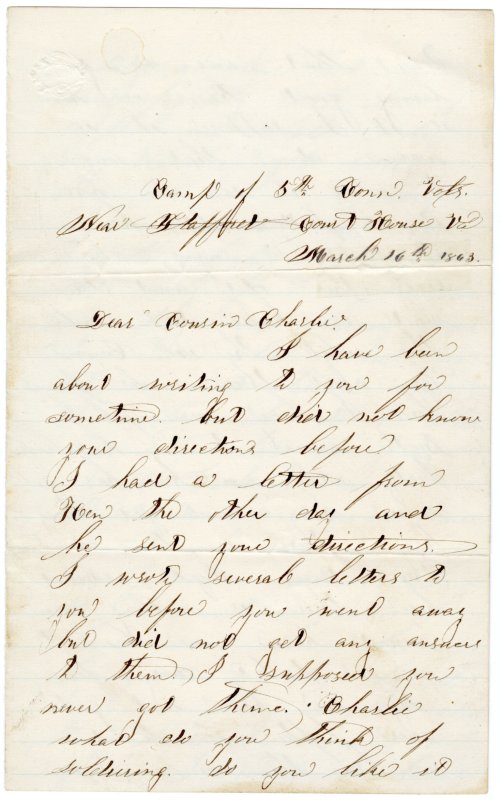 Camp of 5th Conn. Vols.
Near Stafford Court House Va
March 16th 1863.
Dear Cousin Charlie.
I have been
about writing to you for
sometime. but did not know
your directions before
I had a letter from
Hen the other day and
he sent your directions.
I wrote several letters to
you before you went away
but did not get any answer
to them. I supposed you
never got theme. Charlie
what do you think of
soldiering. do you like it